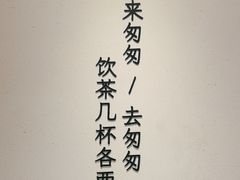 来匆匆 / 去匆匆
饮茶几杯各